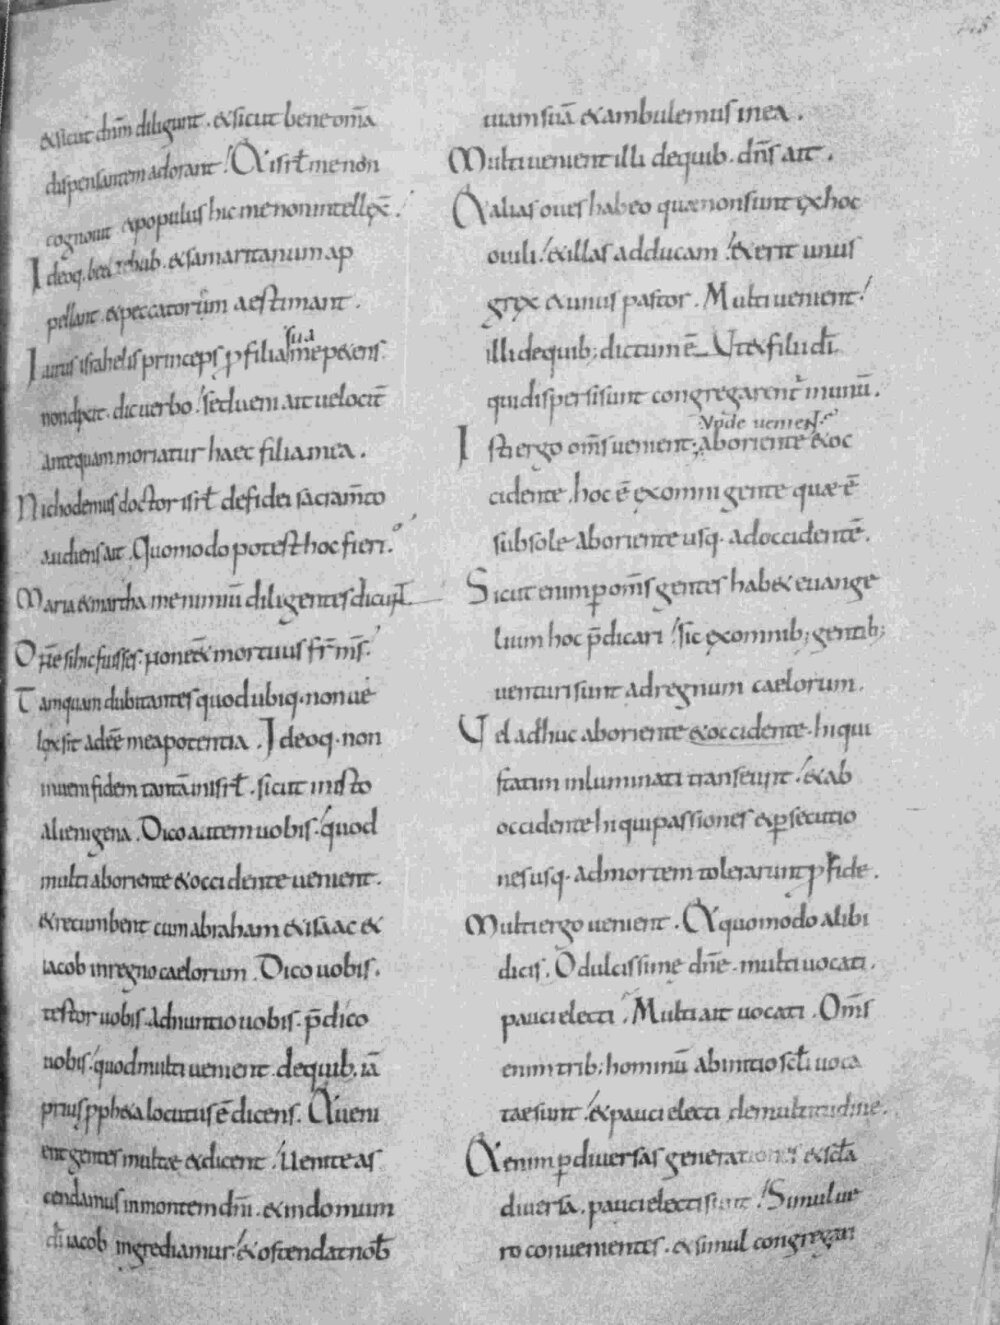 et sicut dn̄m diligunt. et sicut bene om̄a
dispensantem adorant; Et isrł me non
cognouit et populus hic me non intellex̄;
Ideoq. beelzebub. et samaritanum ap
pellant. et peccatorūm aestimant.
Iairus israhelis princeps ꝑ filia sua me petens.
non dixit. dic uerbo; sed ueni ait uelocit̄
antequam moriatur haec filia mea.
Nichodemus doctor isrł de fidei sacram̄to
audiens ait. Quomodo potest hoc fieri.
Maria et martha me nimiū diligentes dicunt
Dn̄e si hic fuisses. non eēt mortuus fr̄ m̄s;
Tamquam dubitantes quod ubiq. non ual
lox sit adēe mea potentia. Ideoq. non
inueni fidem tantā in isrł. sicut in isto
alienigena. Dico autem uobis. quod
multi ab oriente et occidente uenient.
et recumbent cum abraham et isaac et
iacob in regno caelorum. Dico uobis.
testor uobis. adnuntio uobis. p̄dico
uobis. quod multi uenient. de quib. iā
prius ppheta locutus ē dicens. Et ueni
ent gentes multae et dicent; Uenite as
cendamus in montem dn̄i. et in domum
dī iacob ingrediamur; et ostendat nob̄
uiam suā et ambulemus in ea.
Multi uenient illi de quib. dn̄s ait.
Et alias oues habeo quae non sunt ex hoc
ouili; et illas adducam; et erit unus
grex et unus pastor. Multi uenient;
illi de quib; dictum ē. Ut et filii dī.
qui dispersi sunt congregarent̄ in unū.
Unde uenient;
Isti ergo om̄s uenient; ab oriente et oc
cidente. hoc ē ex omni gente quae ē
sub sole ab oriente usq. ad occidentē.
Sicut enim ꝑ om̄s gentes habet euange
lium hoc p̄dicari; sic ex omnib; gentib;
uenturi sunt ad regnum caelorum.
Ud adhuc ab oriente et occidente. hi qui
statim inluminati transeunt; et ab
occidente hi qui passiones et ꝑsecutio
nes usq. ad mortem tolerarunt ꝓ fide.
Multi ergo uenient. Et quomodo alibi
dicis. O dulcissime dn̄e. multi uocati.
pauci electi. Multi ait uocati. Om̄s
enim trib; hominū ab initio sc̄li uoca
tae sunt; et pauci electi de multitudine.
Et enim ꝑ diuersas generationes et sc̄la
diuersa. pauci electi sunt; Simul ue
ro conuenientes. et simul congregati